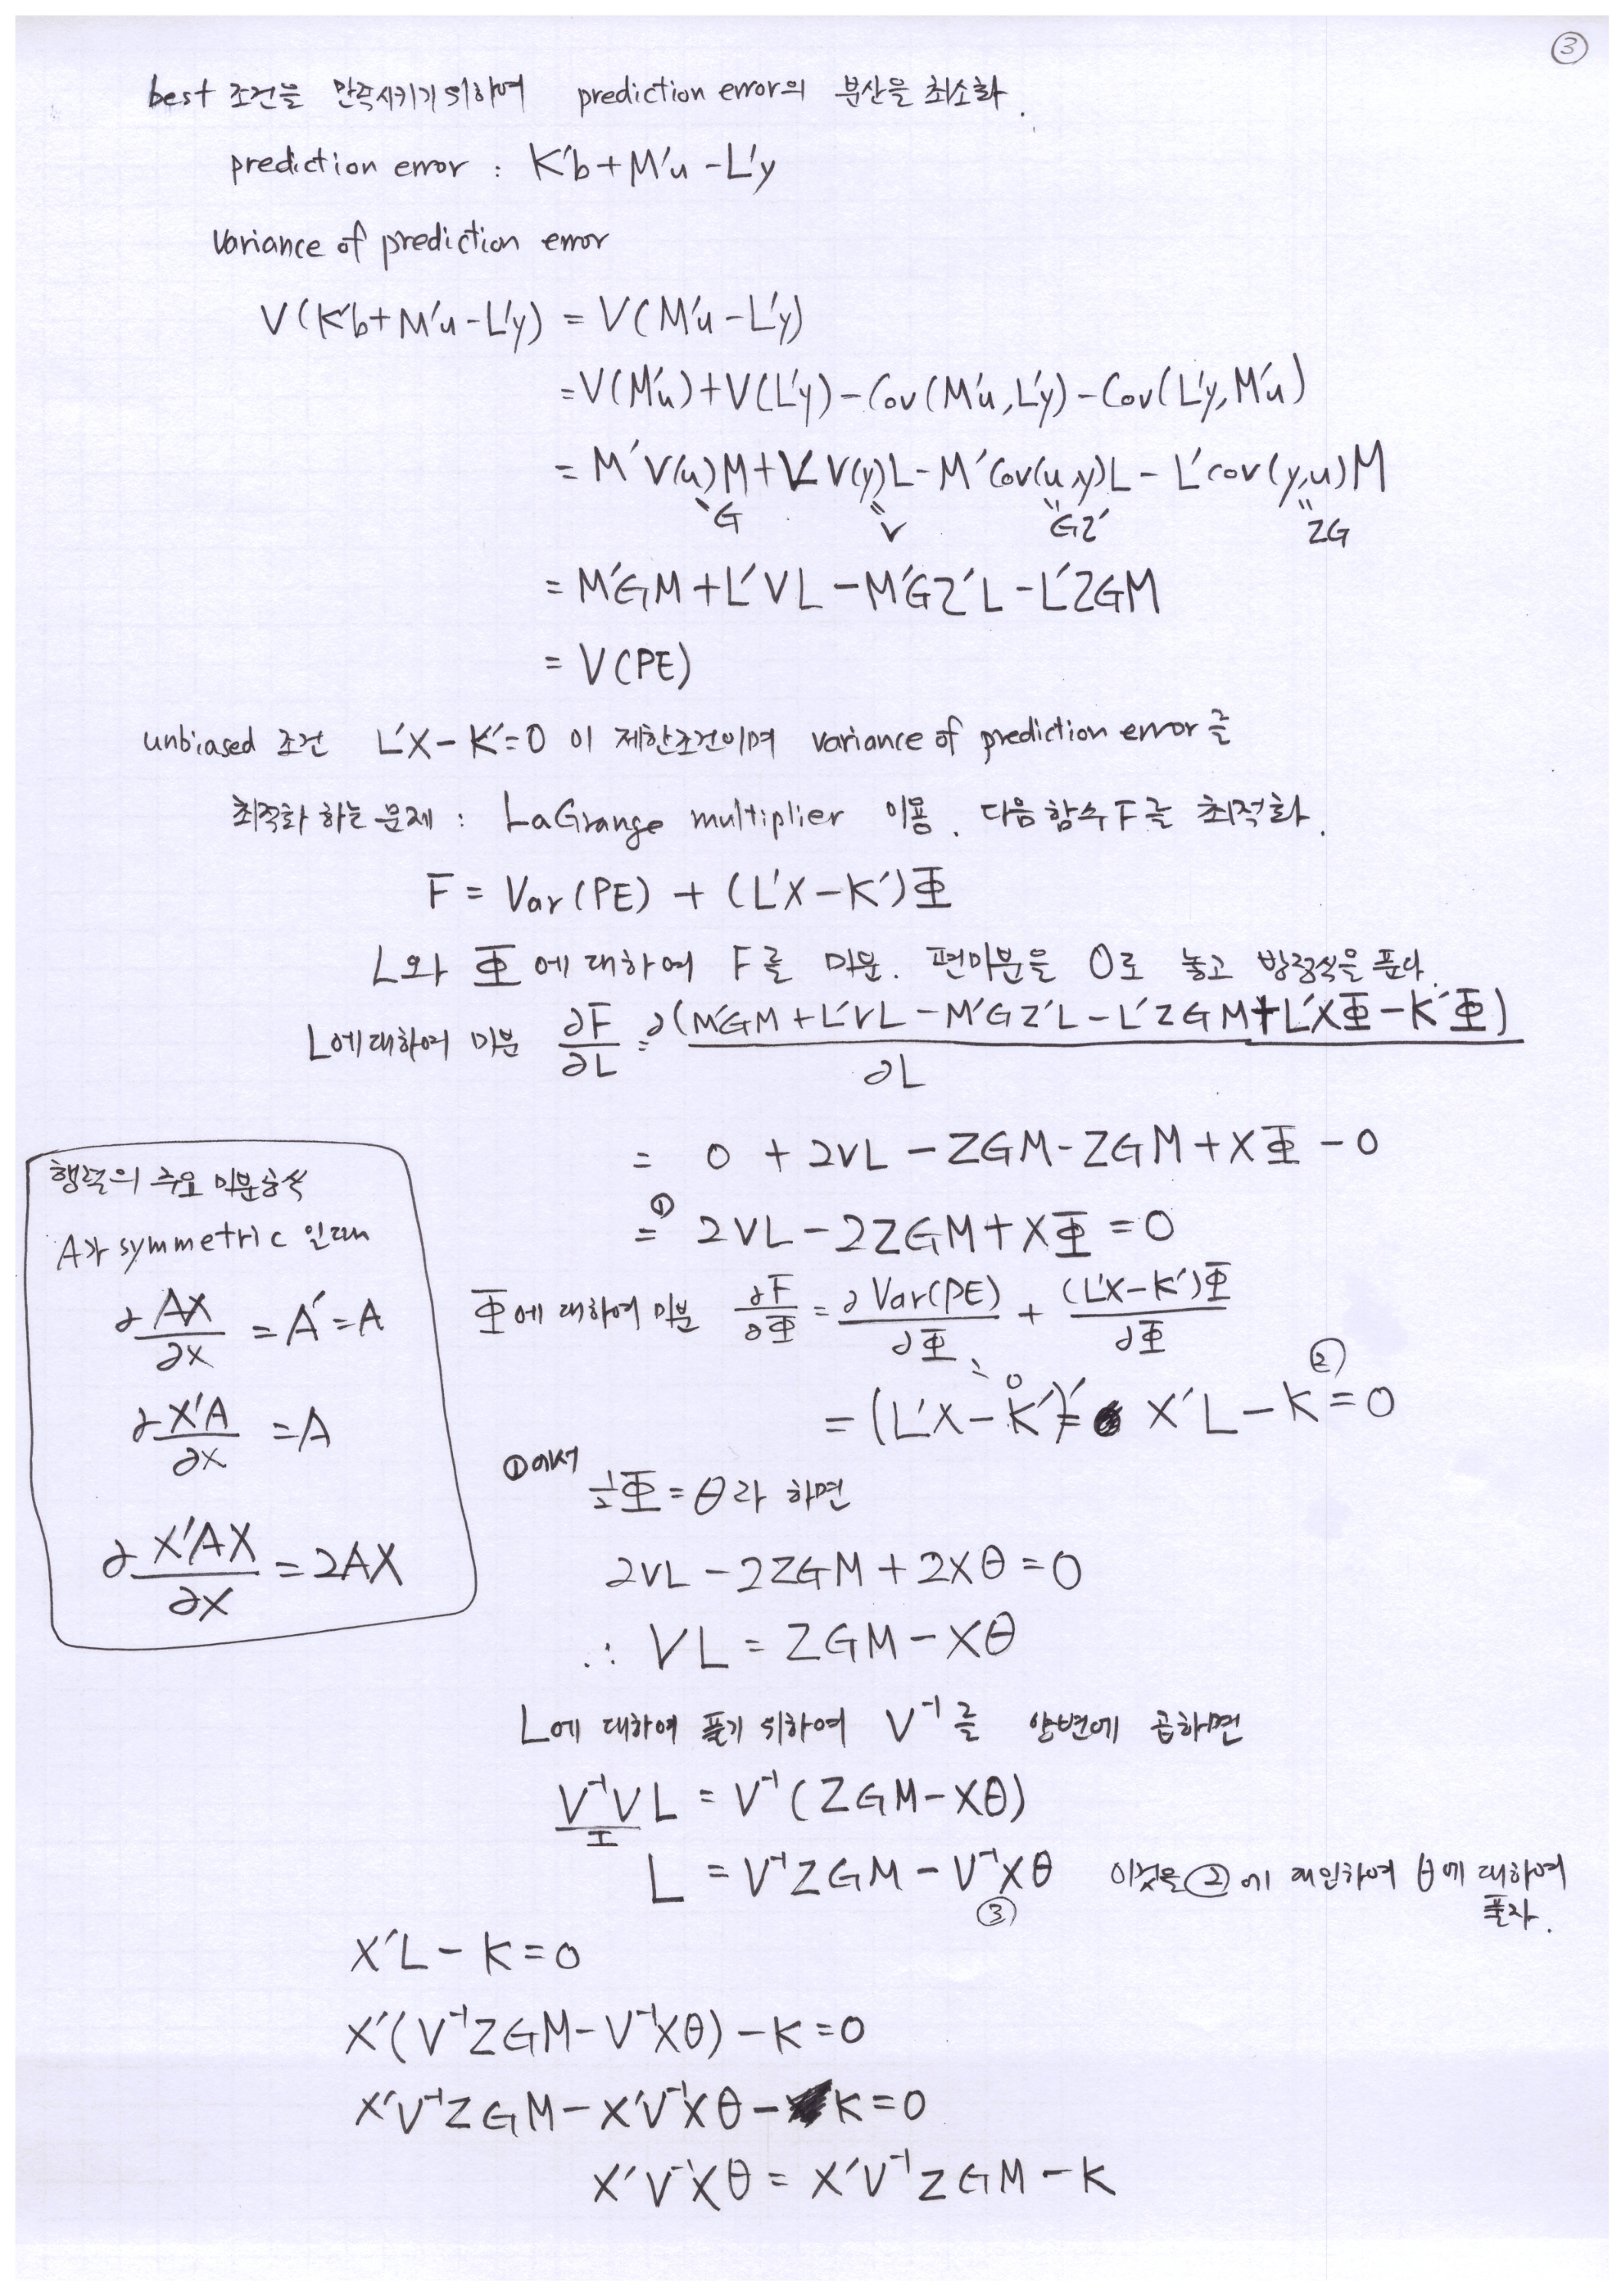 ③
best 조건을 만족시키기 위하여 prediction error의 분산을 최소화.
prediction error : K'b+M'u-L'y
Variance of prediction error
V(K'b+M'u-L'y) = V(M'u-L'y)
=V(M'u)+V(L'y)-Cov(M'u,L'y)-Cov(L'y,M'u)
= M'V(u)M+L'V(y)L-M'Cov(u,y)L-L'cov(y,u)M
"G "V "GZ' "ZG
= M'GM+L'VL-M'GZ'L-L'ZGM
= V(PE)
unbiased 조건 L'X-K'=0 이 제한조건이며 variance of prediction error를
최적화 하는 문제 : LaGrange multiplier 이용. 다음 함수 F를 최적화.
F = Var(PE) + (L'X-K')Φ
L와 Φ에 대하여 F를 미분. 편미분을 0로 놓고 방정식을 푼다.
L에 대하여 미분 ∂F/∂L = ∂(M'GM+L'VL-M'GZ'L-L'ZGM+L'XΦ-K'Φ)/∂L
= 0 + 2VL - ZGM-ZGM+XΦ-0
=① 2VL-2ZGM+XΦ=0
Φ에 대하여 미분 ∂F/∂Φ = ∂Var(PE)/∂Φ + (L'X-K')Φ/∂Φ
"0
= (L'X-K')' = X'L-K=0 ②
행렬의 주요 미분공식
A가 symmetric 인 때
∂AX/∂X = A'=A
∂X'A/∂X =A
∂X'AX/∂X =2AX
①에서 ½Φ=θ라 하면
2VL-2ZGM+2Xθ=0
∴ VL = ZGM-Xθ
L에 대하여 풀기 위하여 V⁻¹를 양변에 곱하면
V⁻¹VL = V⁻¹(ZGM-Xθ)
I
L = V⁻¹ZGM-V⁻¹Xθ 이것을 ②에 대입하여 θ에 대하여
③ 풀자.
X'L-K=0
X'(V⁻¹ZGM-V⁻¹Xθ)-K=0
X'V⁻¹ZGM-X'V⁻¹Xθ-K=0
X'V⁻¹Xθ = X'V⁻¹ZGM-K